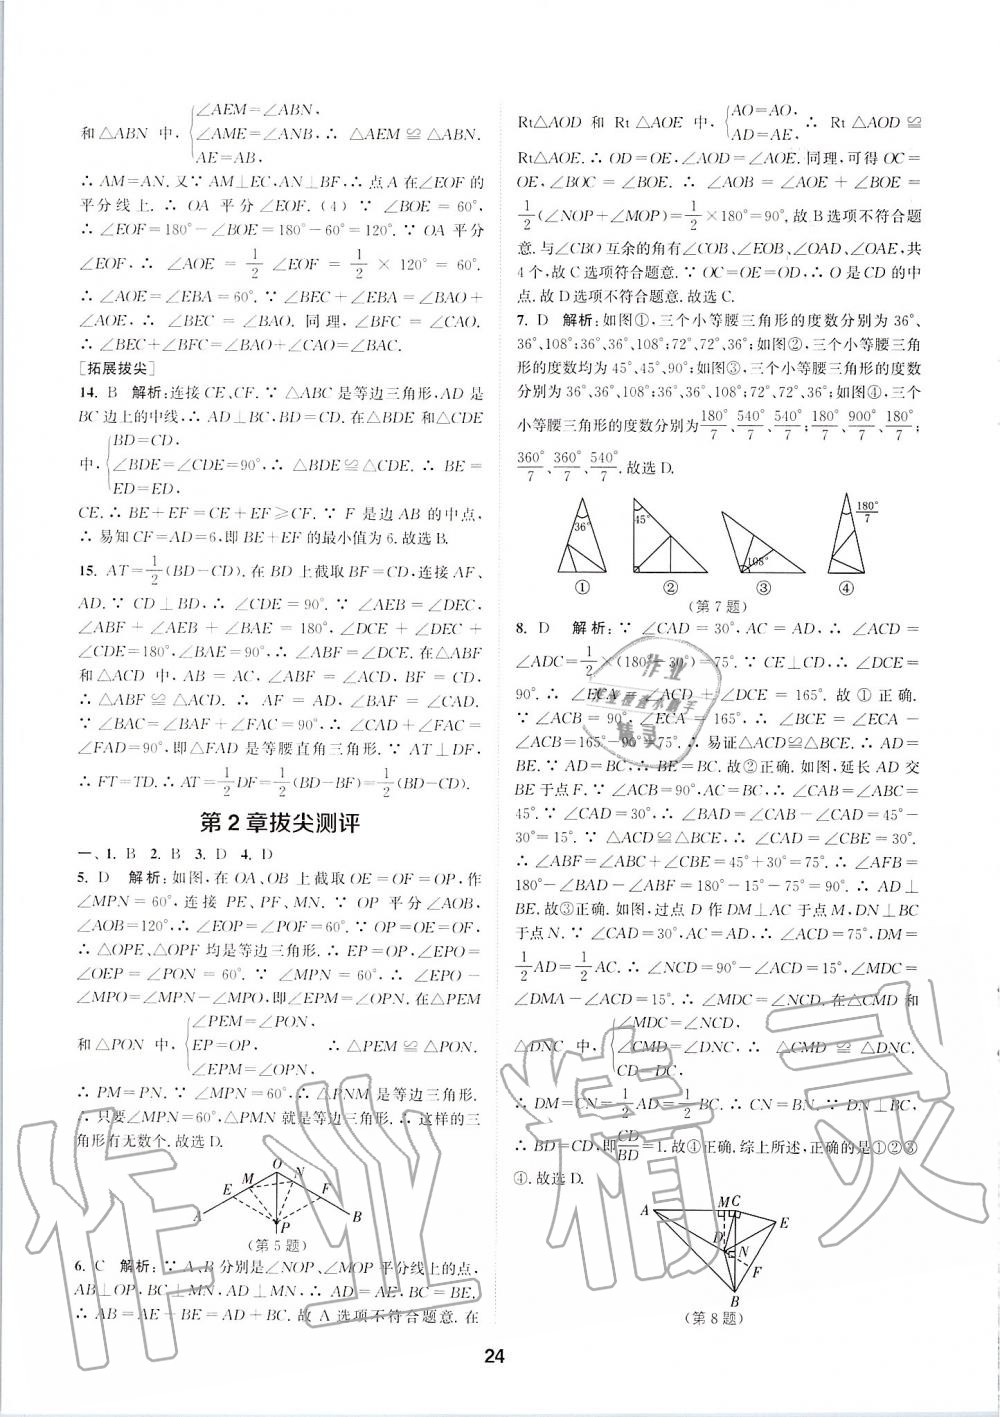 和△ABN 中,{∠AEM=∠ABN,
∠AME=∠ANB,∴ △AEM ≌ △ABN.
AE=AB,
∴ AM=AN. 又∵ AM⊥EC,AN⊥BF,∴ 点 A 在∠EOF 的
平分线上. ∴ OA 平分∠EOF. (4) ∵ ∠BOE=60°,
∴ ∠EOF=180°-∠BOE=180°-60°=120°. ∵ OA 平分
∠EOF, ∴ ∠AOE = 1/2 ∠EOF = 1/2 × 120° = 60°.
∴ ∠AOE=∠EBA=60°. ∵ ∠BEC+∠EBA=∠BAO+
∠AOE, ∴ ∠BEC = ∠BAO. 同理, ∠BFC = ∠CAO.
∴ ∠BEC+∠BFC=∠BAO+∠CAO=∠BAC.
[拓展拔尖]
14. B 解析:连接 CE、CF. ∵ △ABC 是等边三角形,AD 是
BC 边上的中线,∴ AD⊥BC,BD=CD. 在△BDE 和△CDE
中,{BD=CD,
∠BDE=∠CDE=90°,∴ △BDE≌△CDE. ∴ BE =
ED=ED,
CE. ∴ BE+EF=CE+EF⩾CF. ∵ F 是边 AB 的中点,
∴ 易知 CF=AD=6,即 BE+EF 的最小值为 6. 故选 B.
15. AT=1/2(BD-CD). 在 BD 上截取 BF=CD,连接 AF、
AD. ∵ CD⊥BD,∴ ∠CDE=90°. ∵ ∠AEB=∠DEC,
∠ABF+∠AEB+∠BAE=180°,∠DCE+∠DEC+
∠CDE=180°,∠BAE=90°,∴ ∠ABF=∠DCE. 在△ABF
和△ACD 中, AB = AC, ∠ABF = ∠ACD, BF = CD,
∴ △ABF ≌ △ACD. ∴ AF = AD, ∠BAF = ∠CAD.
∵ ∠BAC=∠BAF+∠FAC=90°,∴ ∠CAD+∠FAC=
∠FAD=90°,即△FAD 是等腰直角三角形. ∵ AT⊥DF,
∴ FT=TD. ∴ AT=1/2DF=1/2(BD-BF)=1/2(BD-CD).
第 2 章拔尖测评
一、1. B 2. B 3. D 4. D
5. D 解析:如图,在 OA、OB 上截取 OE=OF=OP,作
∠MPN=60°,连接 PE、PF、MN. ∵ OP 平分∠AOB,
∠AOB=120°,∴ ∠EOP=∠POF=60°. ∵ OP=OE=OF,
∴ △OPE、△OPF 均是等边三角形. ∴ EP=OP,∠EPO=
∠OEP = ∠PON = 60°. ∵ ∠MPN = 60°, ∴ ∠EPO -
∠MPO=∠MPN-∠MPO,即∠EPM=∠OPN. 在△PEM
和△PON 中,{∠PEM=∠PON,
EP=OP, ∴ △PEM ≌ △PON.
∠EPM=∠OPN,
∴ PM=PN. ∵ ∠MPN=60°,∴ △PNM 是等边三角形.
∴ 只要∠MPN=60°,△PMN 就是等边三角形. ∴ 这样的三
角形有无数个. 故选 D.
O
M N
E F
A P B
(第 5 题)
6. C 解析:∵ A、B 分别是∠NOP、∠MOP 平分线上的点,
AB⊥OP,BC⊥MN,AD⊥MN,∴ AD=AE,BC=BE.
∴ AB = AE + BE = AD + BC. 故 A 选项不符合题意. 在
Rt△AOD 和 Rt△AOE 中,{AO=AO,
AD=AE, ∴ Rt△AOD ≌
Rt△AOE. ∴ OD=OE,∠AOD=∠AOE. 同理,可得 OC=
OE,∠BOC = ∠BOE. ∴ ∠AOB = ∠AOE + ∠BOE =
1/2(∠NOP+∠MOP)=1/2×180°=90°. 故 B 选项不符合题
意. 与∠CBO 互余的角有∠COB、∠EOB、∠OAD、∠OAE,共
4 个,故 C 选项符合题意. ∵ OC=OE=OD,∴ O 是 CD 的中
点. 故 D 选项不符合题意. 故选 C.
7. D 解析:如图①,三个小等腰三角形的度数分别为 36°、
36°、108°;36°、36°、108°;72°、72°、36°;如图②,三个小等腰三角
形的度数均为 45°、45°、90°;如图③,三个小等腰三角形的度数
分别为 36°、36°、108°;36°、36°、108°;72°、72°、36°;如图④,三个
小等腰三角形的度数分别为180°/7、540°/7、540°/7;180°/7、900°/7、180°/7;
360°/7、360°/7、540°/7. 故选 D.
36° 45° 108° 180°/7
① ② ③ ④
(第 7 题)
8. D 解析:∵ ∠CAD = 30°, AC = AD, ∴ ∠ACD =
∠ADC=1/2×(180°-30°)=75°. ∵ CE⊥CD,∴ ∠DCE=
90°. ∴ ∠ECA = ∠ACD + ∠DCE = 165°. 故 ① 正确.
∵ ∠ACB = 90°, ∠ECA = 165°, ∴ ∠BCE = ∠ECA -
∠ACB=165°-90°=75°. ∴ 易证△ACD≌△BCE. ∴ AD=
BE. ∵ AC=BC,∴ AD=BC. 故②正确. 如图,延长 AD 交
BE 于点 F. ∵ ∠ACB=90°,AC=BC,∴ ∠CAB=∠ABC=
45°. ∵ ∠CAD=30°,∴ ∠BAD=∠CAB-∠CAD=45°-
30°=15°. ∵ △ACD≌△BCE,∴ ∠CAD=∠CBE=30°.
∴ ∠ABF=∠ABC+∠CBE=45°+30°=75°. ∴ ∠AFB=
180°-∠BAD-∠ABF=180°-15°-75°=90°. ∴ AD⊥
BE. 故③正确. 如图,过点 D 作 DM⊥AC 于点 M,DN⊥BC
于点 N. ∵ ∠CAD=30°,AC=AD,∴ ∠ACD=75°,DM=
1/2AD=1/2AC. ∴ ∠NCD=90°-∠ACD=15°,∠MDC=
∠DMA-∠ACD=15°. ∴ ∠MDC=∠NCD. 在△CMD 和
△DNC 中,{∠MDC=∠NCD,
∠CMD=∠DNC, ∴ △CMD ≌ △DNC.
CD=DC,
∴ DM=CN=1/2AD=1/2BC. ∴ CN=BN. ∵ DN⊥BC,
∴ BD=CD,即CD/BD=1. 故④正确. 综上所述,正确的是①②③
④. 故选 D.
A M C E
D N
F
B
(第 8 题)
24
作业精灵
作业
作业检查小助手
精灵